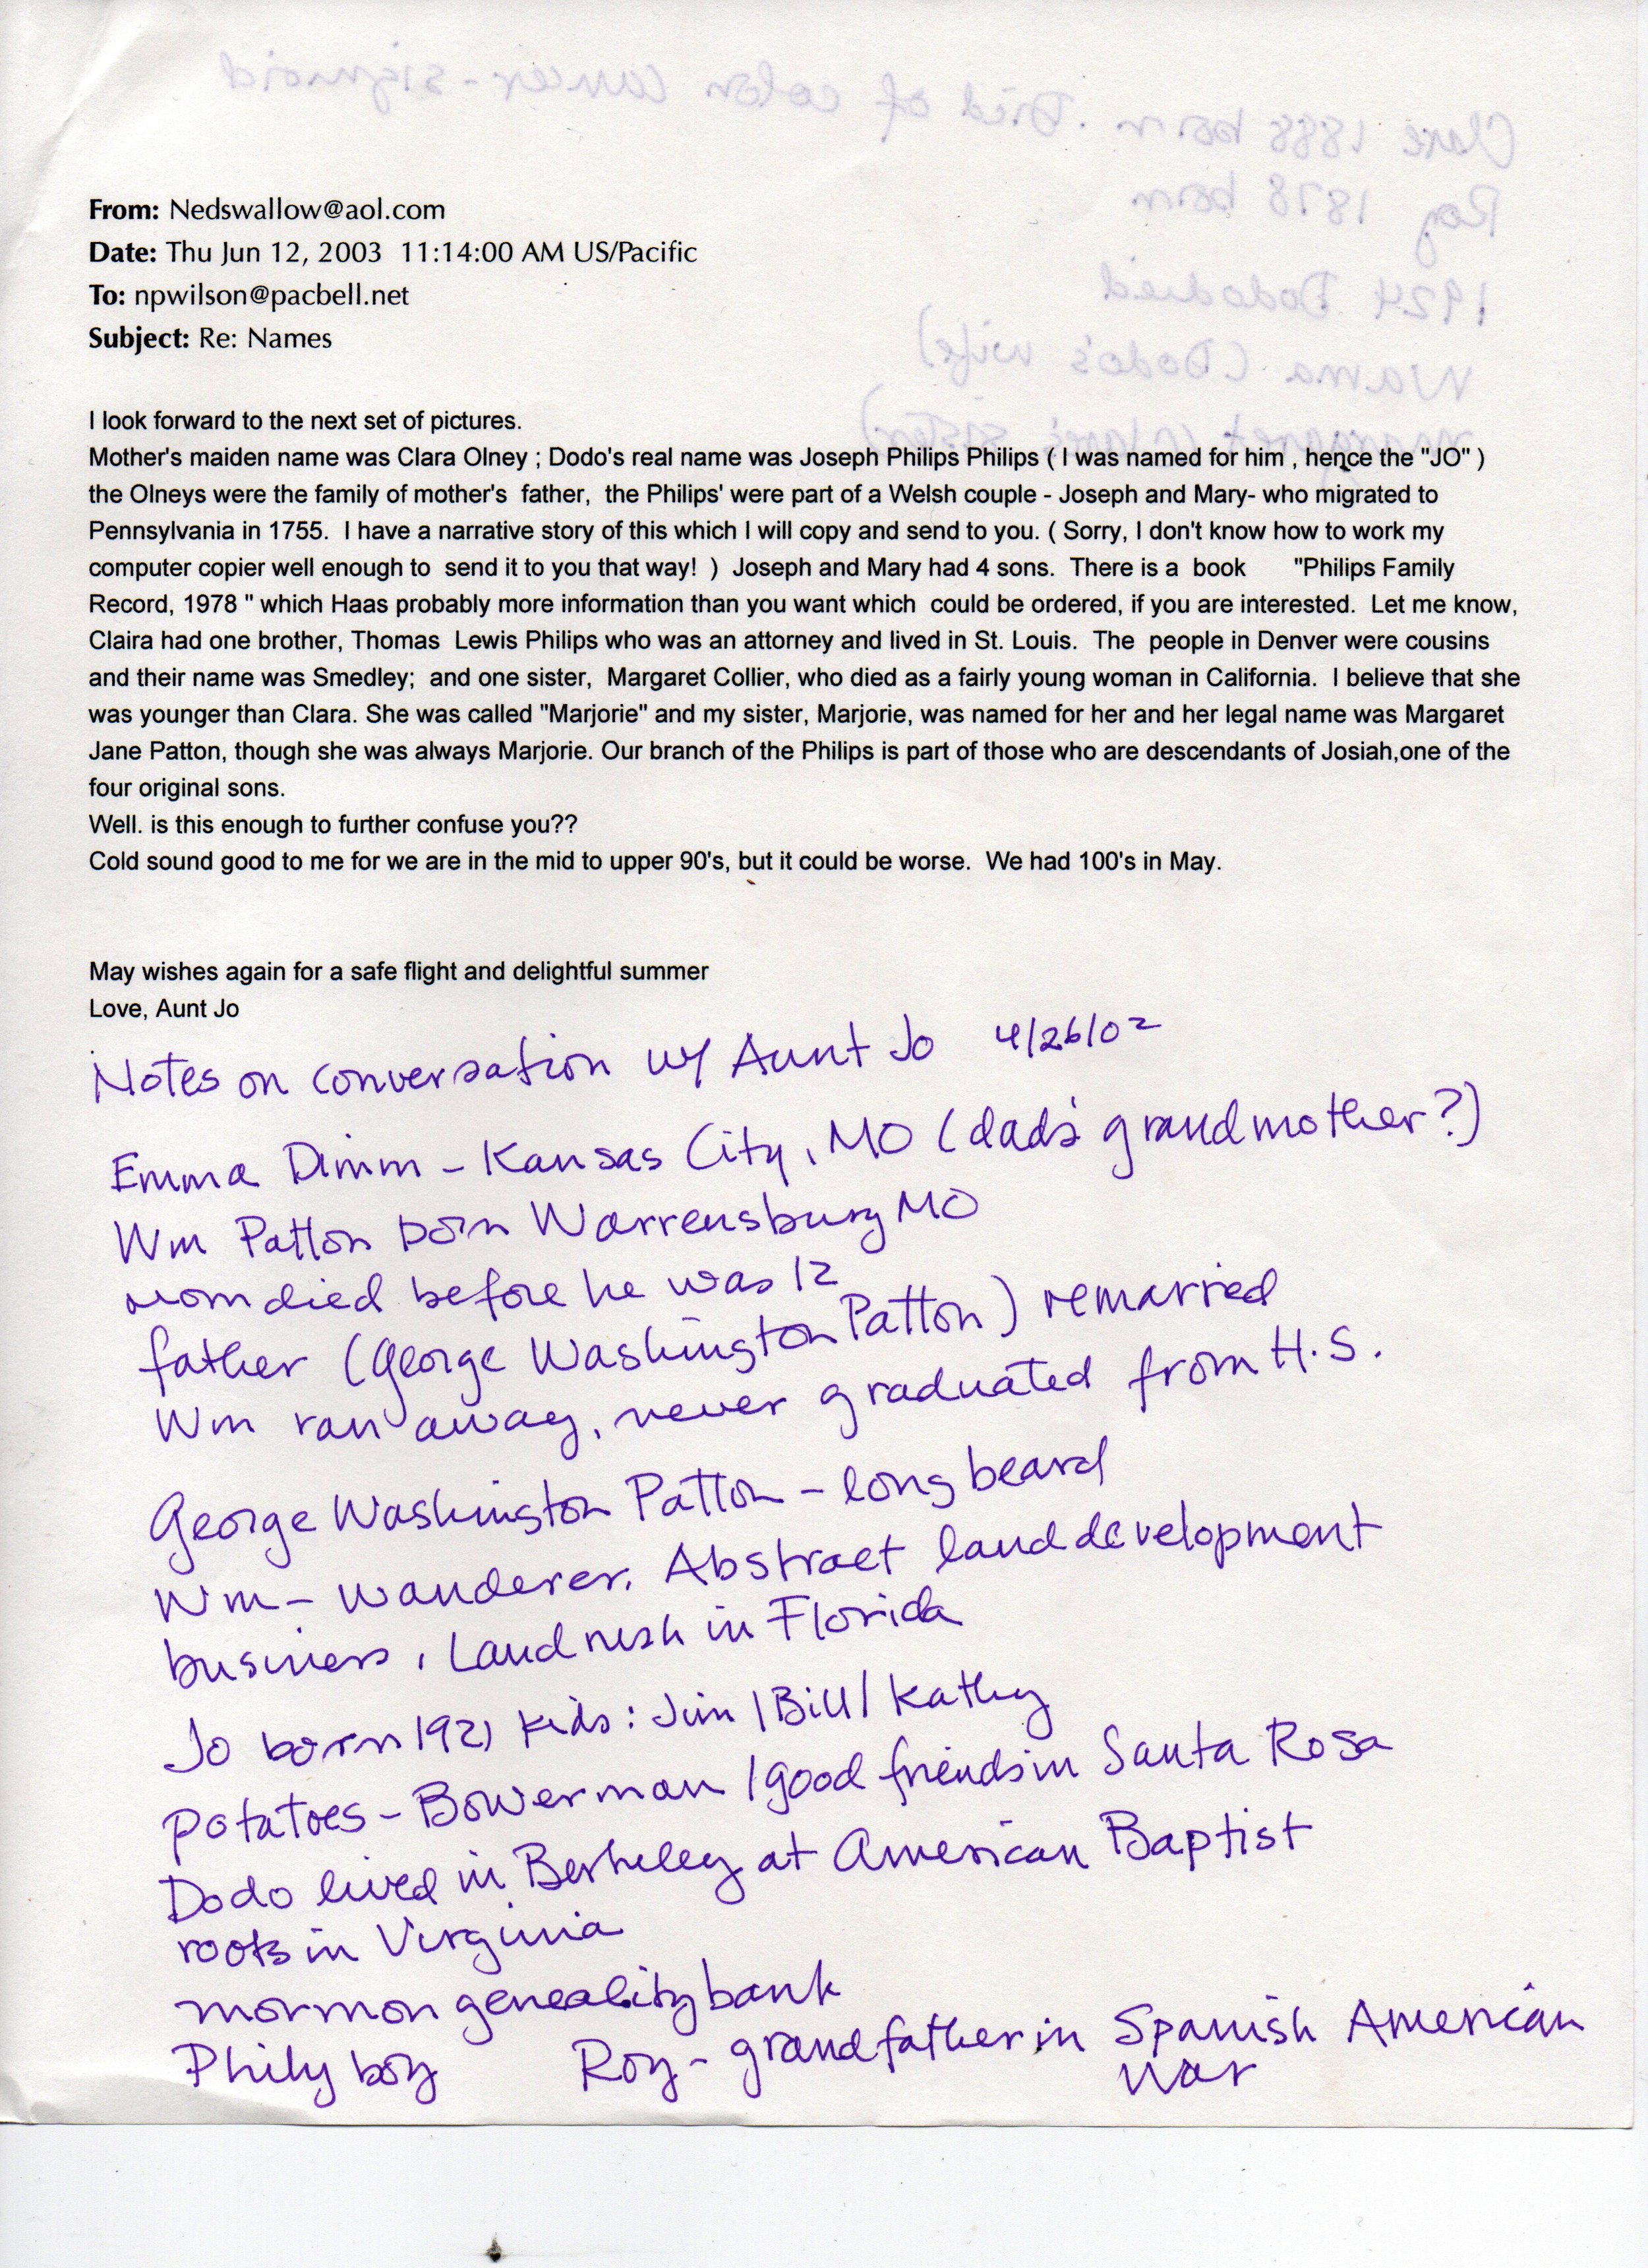 Clare 1888 born. Died of colon cancer - sigmoid
Roy 1878 born
1924 Dodo died
Wama (Dodo's wife)
Margaret (Clare's sister)
From: Nedswallow@aol.com
Date: Thu Jun 12, 2003 11:14:00 AM US/Pacific
To: npwilson@pacbell.net
Subject: Re: Names
I look forward to the next set of pictures.
Mother's maiden name was Clara Olney ; Dodo's real name was Joseph Philips Philips ( I was named for him , hence the "JO" )
the Olneys were the family of mother's father, the Philips' were part of a Welsh couple - Joseph and Mary- who migrated to
Pennsylvania in 1755. I have a narrative story of this which I will copy and send to you. ( Sorry, I don't know how to work my
computer copier well enough to send it to you that way! ) Joseph and Mary had 4 sons. There is a book "Philips Family
Record, 1978 " which Haas probably more information than you want which could be ordered, if you are interested. Let me know,
Claira had one brother, Thomas Lewis Philips who was an attorney and lived in St. Louis. The people in Denver were cousins
and their name was Smedley; and one sister, Margaret Collier, who died as a fairly young woman in California. I believe that she
was younger than Clara. She was called "Marjorie" and my sister, Marjorie, was named for her and her legal name was Margaret
Jane Patton, though she was always Marjorie. Our branch of the Philips is part of those who are descendants of Josiah,one of the
four original sons.
Well. is this enough to further confuse you??
Cold sound good to me for we are in the mid to upper 90's, but it could be worse. We had 100's in May.
May wishes again for a safe flight and delightful summer
Love, Aunt Jo
Notes on conversation w/ Aunt Jo 4/26/02
Emma Dimm - Kansas City, MO (dad's grandmother?)
Wm Patton born Warrensburg MO
mom died before he was 12
father (George Washington Patton) remarried
Wm ran away, never graduated from H.S.
George Washington Patton - long beard
Wm - wanderer. Abstract land development
business, Land rush in Florida
Jo born 1921 kids: Jim / Bill / Kathy
potatoes - Bowerman / good friends in Santa Rosa
Dodo lived in Berkeley at American Baptist
roots in Virginia
mormon geneality bank
Phily boy Roy - grandfather in Spanish American
War